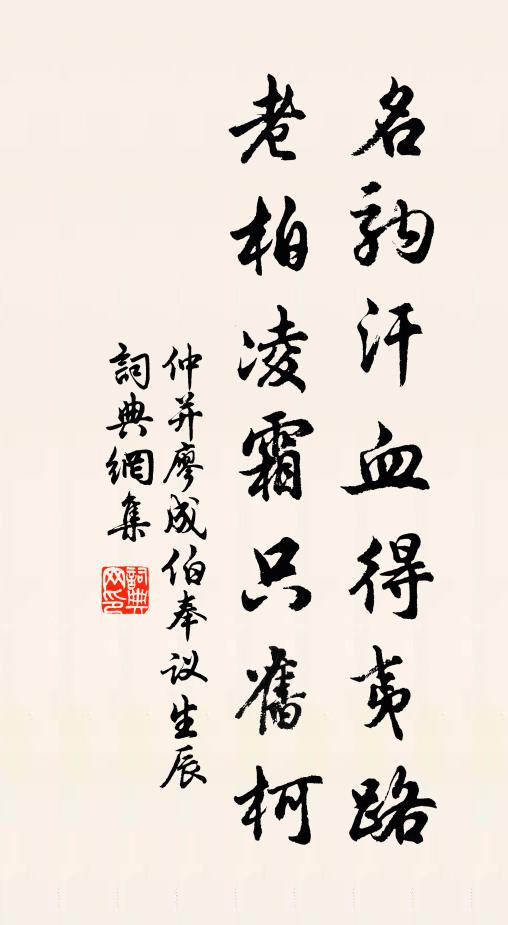 名駒汗血得夷路
老柏凌霜只舊柯
仲并廖成伯奉议生辰
詞典網集
詞典网印